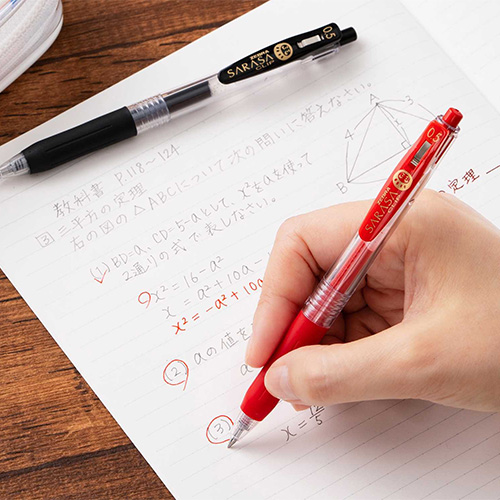 ZEBRA
SARASA
CLIP
0.5
教科書 P118~124
③ 三平方の定理
右の図の△ABCについて次の問いに答えなさい。
(1) BD=a、CD=5-aとして、x²をaを使って
2通りの式で表しなさい。
x² = 16-a²
x = a²+10a-
x² = -a²+10a
(2) aの値を
(3)
x = 12/5
A
B
4
3
x
定理
ZEBRA
SARASA
0.5